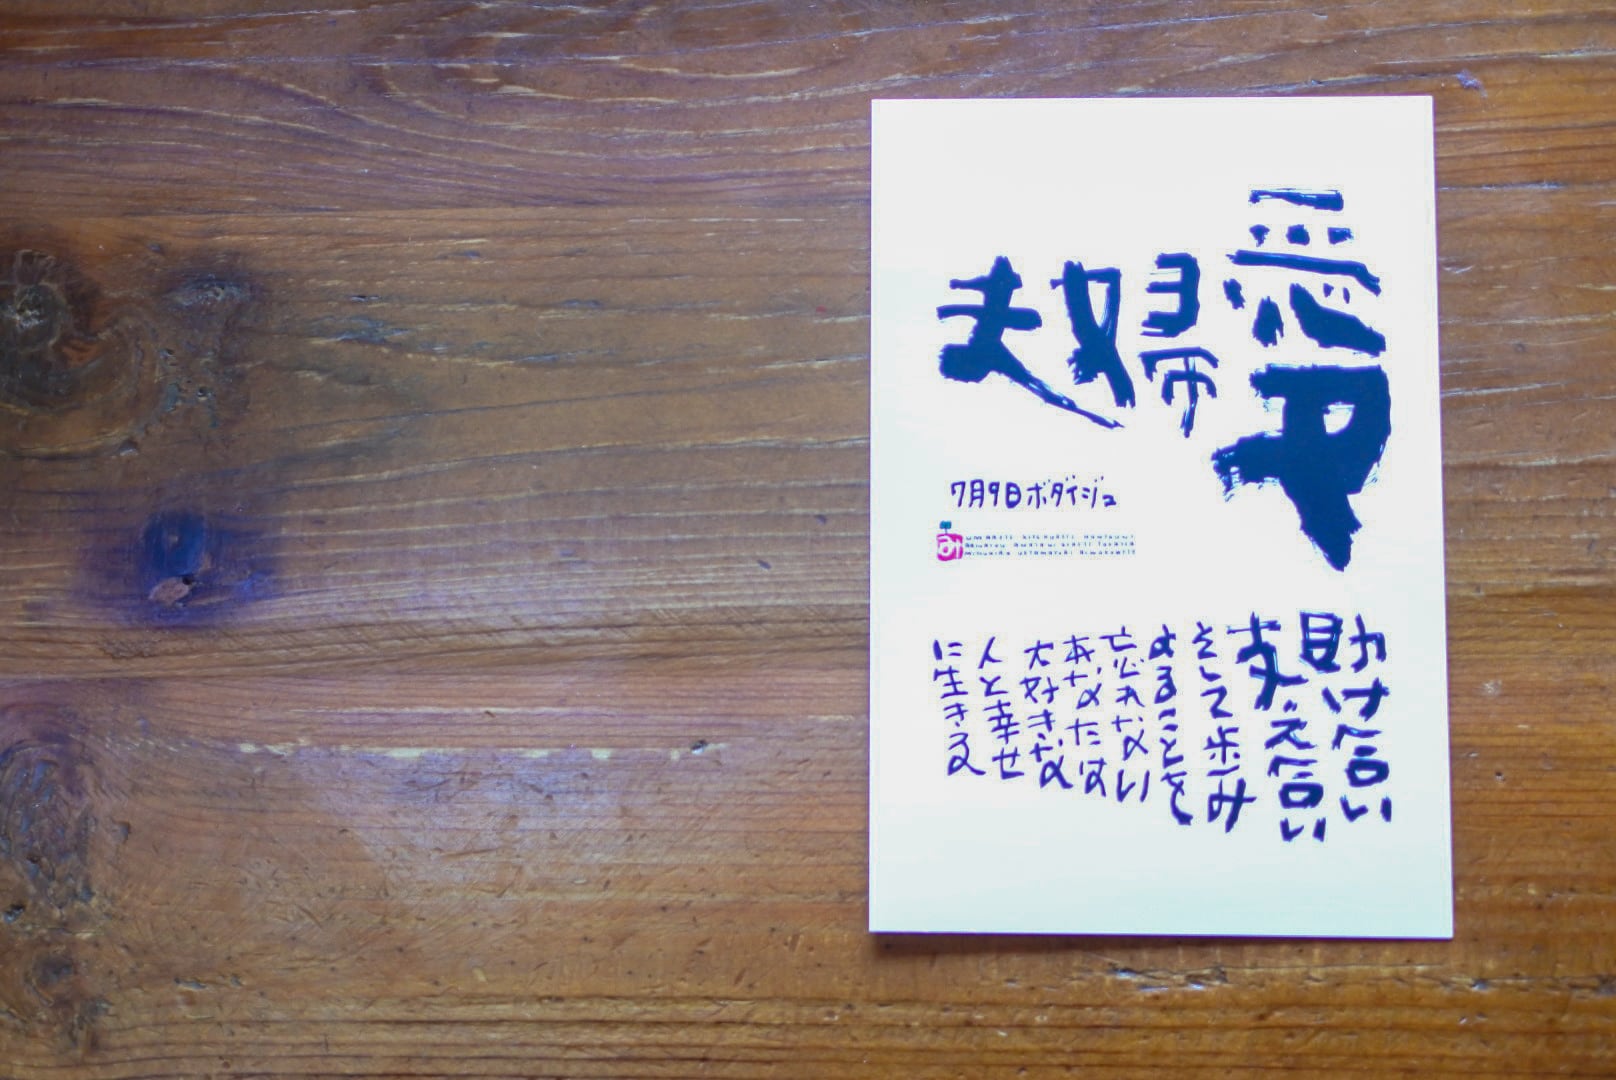 夫婦愛
7月9日ボダイジュ
助け合い
支え合い
そして歩み
よることを
忘れない
あなたは
大好きな
人と幸せ
に生きる